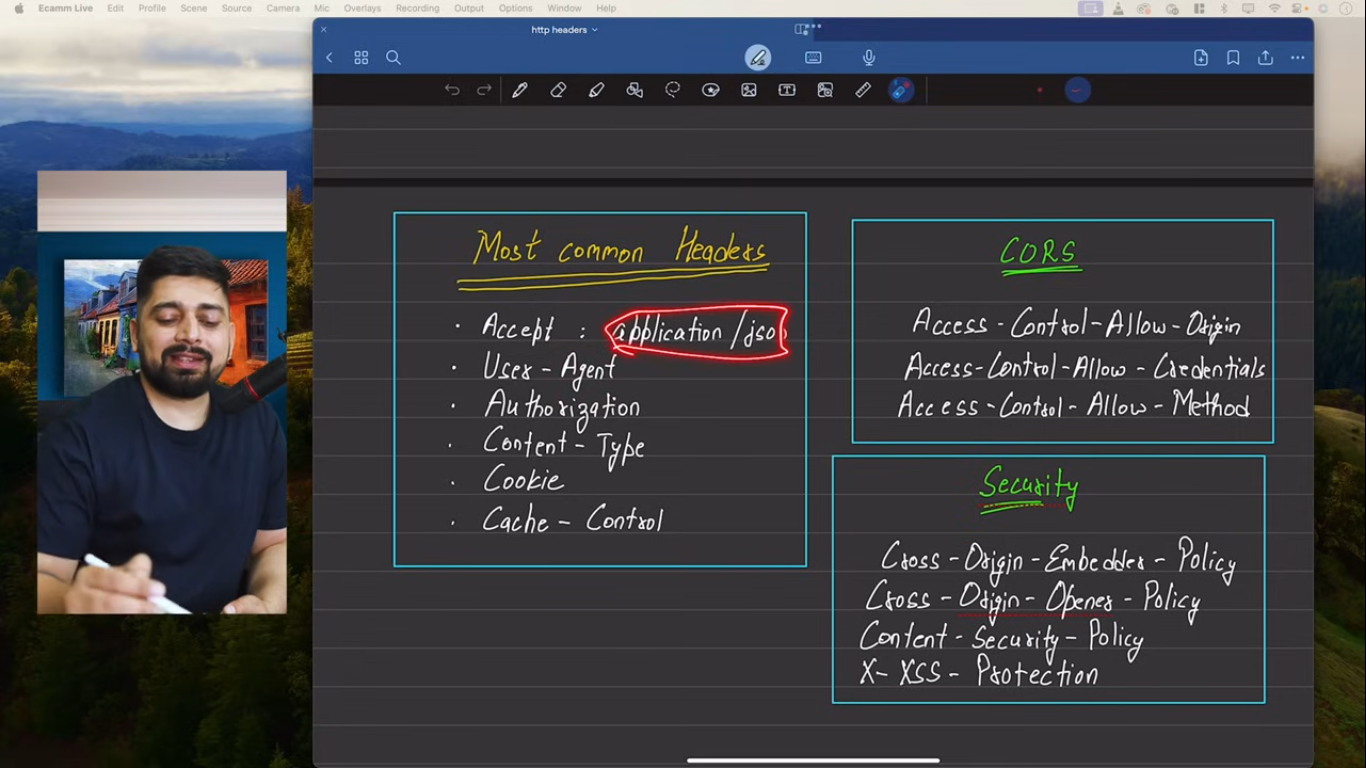 Ecamm Live Edit Profile Scene Source Camera Mic Overlays Recording Output Options Window Help
http headers
Most common Headers
· Accept : application/json
· User-Agent
· Authorization
· Content-Type
· Cookie
· Cache-Control
CORS
Access-Control-Allow-Origin
Access-Control-Allow-Credentials
Access-Control-Allow-Method
Security
Cross-Origin-Embedder-Policy
Cross-Origin-Opener-Policy
Content-Security-Policy
X-XSS-Protection